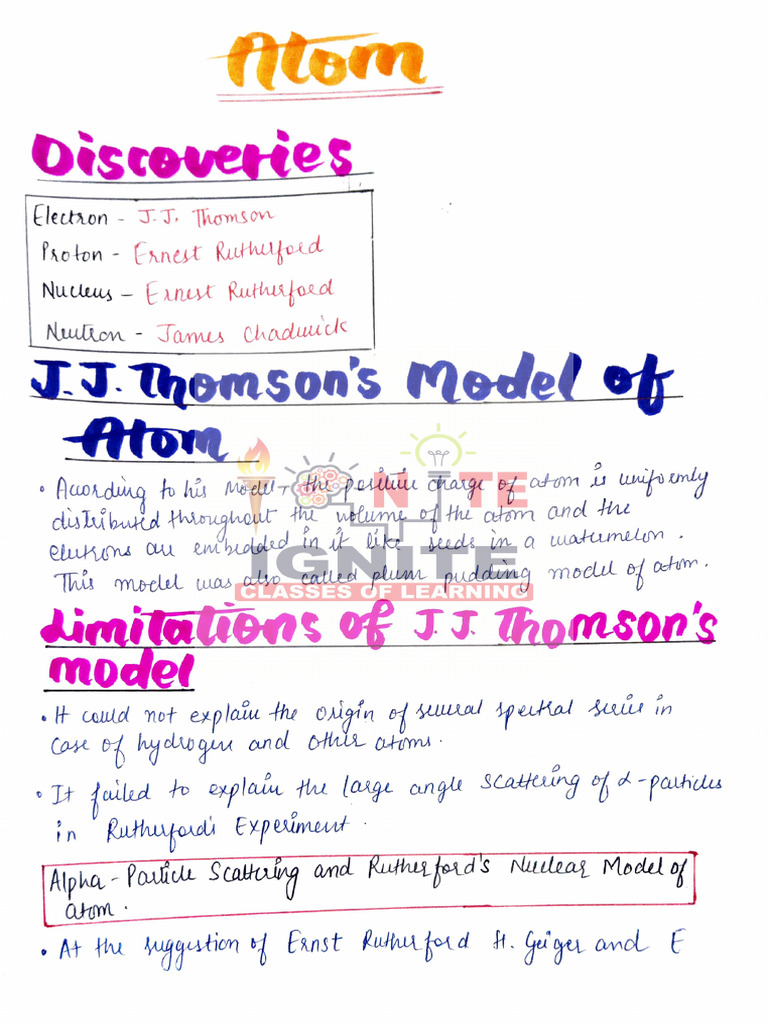 Atom
Discoveries
Electron - J.J. Thomson
Proton - Ernest Rutherford
Nucleus - Ernest Rutherford
Neutron - James Chadwick
J.J. Thomson's Model of
Atom
• According to his model, the positive charge of atom is uniformly
distributed throughout the volume of the atom and the
electrons are embedded in it like seeds in a watermelon.
This model was also called plum pudding model of atom.
IGNITE
IGNITE
CLASSES OF LEARNING
Limitations of J.J. Thomson's
model
• It could not explain the origin of several spectral series in
case of hydrogen and other atoms.
• It failed to explain the large angle scattering of α-particles
in Rutherford's Experiment.
Alpha-Particle Scattering and Rutherford's Nuclear Model of
atom.
• At the suggestion of Ernst Rutherford H. Geiger and E